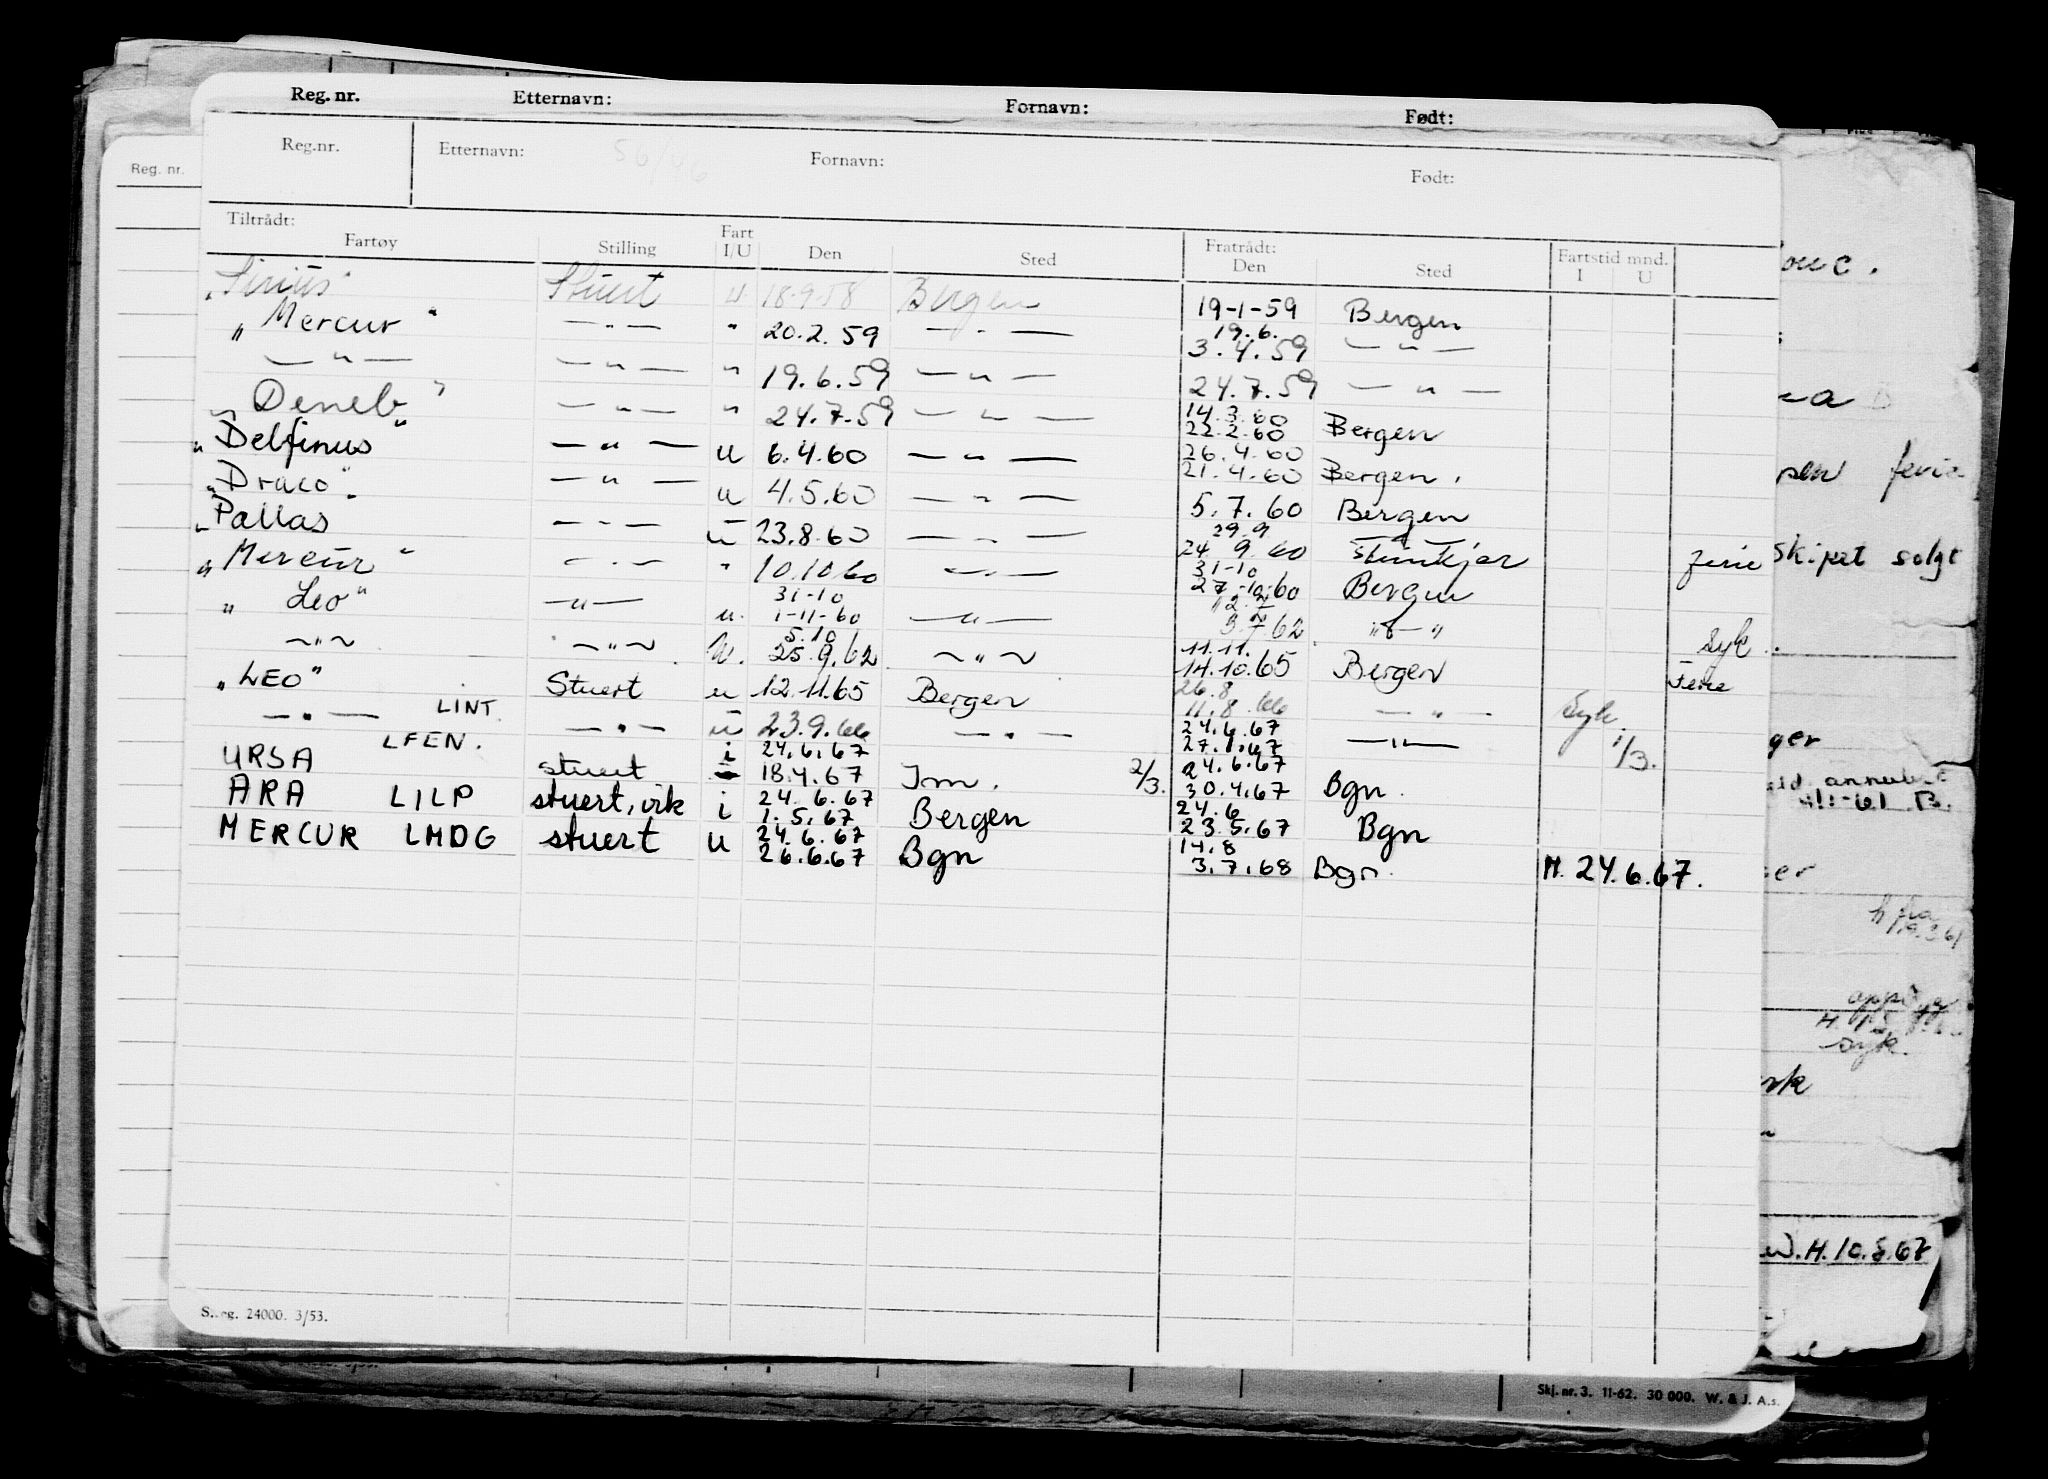 Reg. nr. Etternavn: Fornavn: Født:
Reg.nr. Etternavn: 56/46 Fornavn: Født:
Reg. nr.
Tiltrådt: Fratrådt:
Fartøy Stilling Fart I/U Den Sted Den Sted Fartstid mnd. I U
"Sirius" Stuert u 18.9.58 Bergen 19-1-59 Bergen
"Mercur" — " — " 20.2.59 — " — 19.6. 3.4.59 — " —
— " — — " — " 19.6.59 — " — 24.7.59 — " —
"Deneb" — " — " 24.7.59 — " — 14.3.60 22.2.60 Bergen
"Delfinus" — " — u 6.4.60 — " — 26.4.60 21.4.60 Bergen.
"Draco" — " — u 4.5.60 — " — 5.7.60 Bergen
"Pallas — " — u 23.8.60 — " — 29.9 24.9.60 Steinkjær Ferie
"Mercur" — " — " 10.10.60 — " — 31-10 27-10.60 Bergen
"Leo" — " — 31-10 u. 1-11-60 — " — 62 " — " Syk
— " — — " — u. 5.10 25.9.62 — " — 11.11. 14.10.65 Bergen Ferie
"LEO" Stuert u 12.11.65 Bergen 26.8 11.8.66 — " — Syk
— " — LINT. — " — u 23.9.66 — " — 24.6.67 27.1.67 — " — 1/3.
URSA LFEN. stuert i 24.6.67 18.4.67 Inn. 2/3. 24.6.67 30.4.67 Bgn.
ARA LILP stuert, vik i 24.6.67 1.5.67 Bergen 24.6 23.5.67 Bgn
MERCUR LMDG stuert u 24.6.67 26.6.67 Bgn 14.8 3.7.68 Bgn. H. 24.6.67.
ferie
skipet solgt
ger
annul
H. 15
syk.
H. 10.8.67
24000. 3/53.
Skj. nr. 3. 11-62. 30 000. W. & J. A.s.